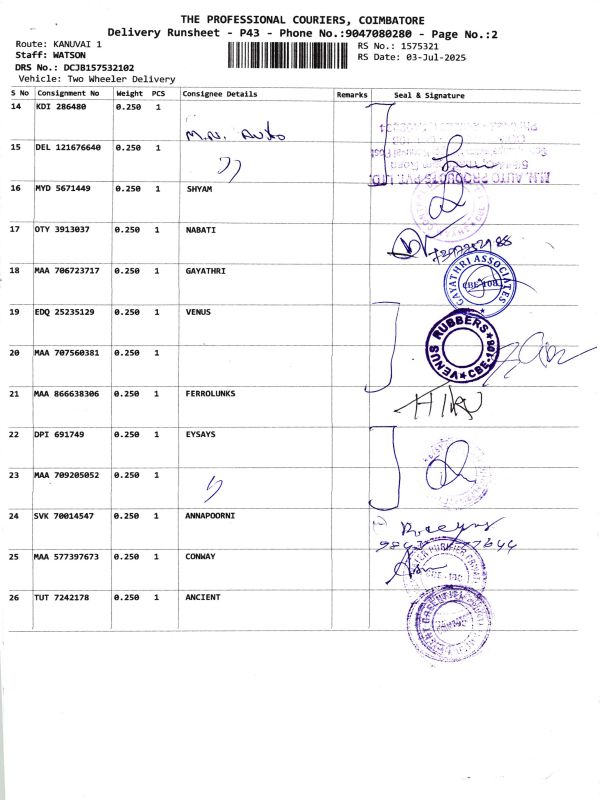 THE PROFESSIONAL COURIERS, COIMBATORE
Delivery Runsheet - P43 - Phone No.:9047080280 - Page No.:2
Route: KANUVAI 1
RS No.: 1575321
Staff: WATSON
RS Date: 03-Jul-2025
DRS No.: DCJB157532102
Vehicle: Two Wheeler Delivery
S No Consignment No Weight PCS Consignee Details Remarks Seal & Signature
14 KDI 286480 0.250 1
M.N. Auto
15 DEL 121676640 0.250 1
M.N. AUTO PRODUCTS PVT. LTD.
16 MYD 5671449 0.250 1 SHYAM
17 OTY 3913037 0.250 1 NABATI
18 MAA 706723717 0.250 1 GAYATHRI
GAYATHRI ASSOCIATES
CBE-108
19 EDQ 25235129 0.250 1 VENUS
VENUS RUBBERS
CBE-108
20 MAA 707560381 0.250 1
21 MAA 866638306 0.250 1 FERROLUNKS
22 DPI 691749 0.250 1 EYSAYS
23 MAA 709205052 0.250 1
24 SVK 70014547 0.250 1 ANNAPOORNI
25 MAA 577397673 0.250 1 CONWAY
26 TUT 7242178 0.250 1 ANCIENT